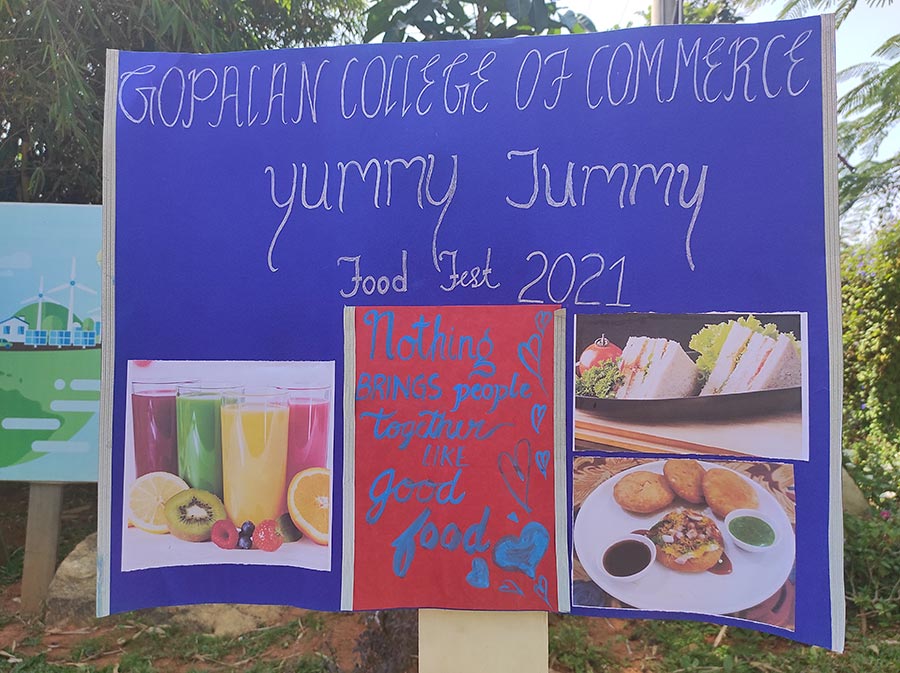 GOPALAN COLLEGE OF COMMERCE
yummy Tummy
Food Fest 2021
Nothing
BRINGS people
together
LIKE
good
food